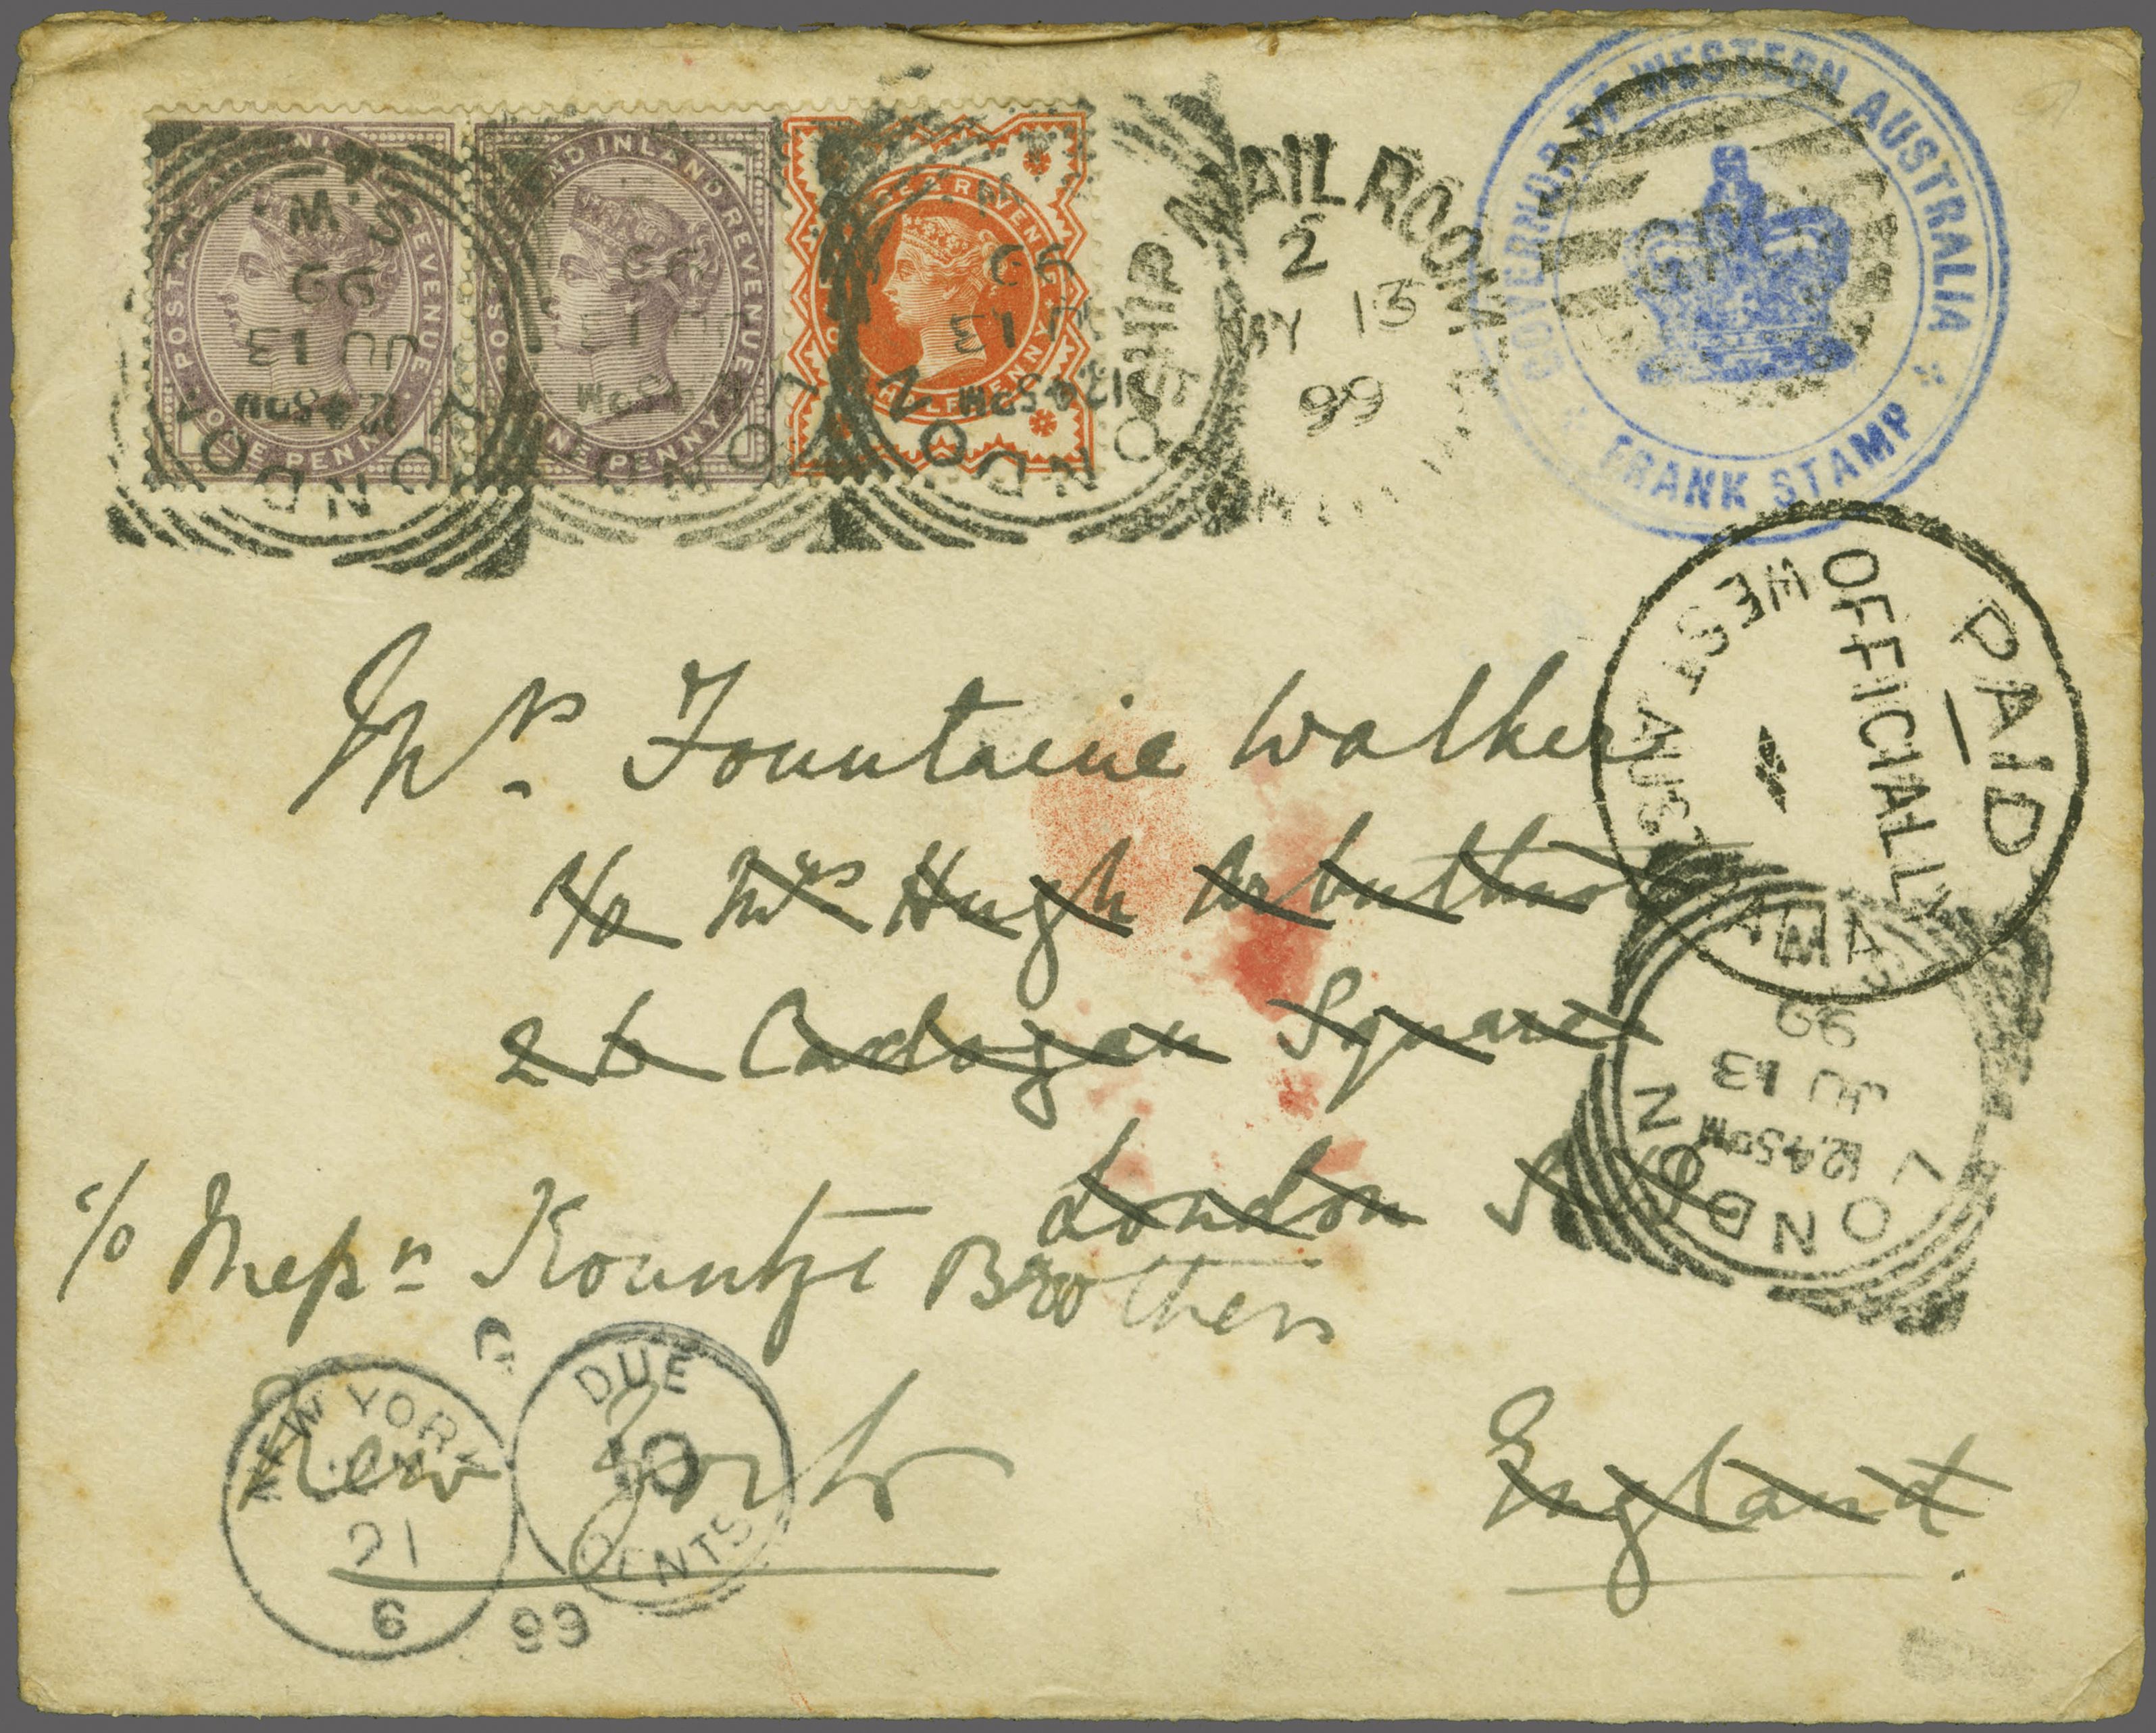 POSTAGE AND INLAND REVENUE
ONE PENNY
POSTAGE AND INLAND REVENUE
ONE PENNY
POSTAGE & REVENUE
HALF PENNY
LONDON
S.W.
99
JU 13
12.45PM
LONDON
99
12.45PM
LONDON
99
JU 13
12.45PM
SHIP MAIL ROOM
2
MY 13
99
GOVERNOR OF WESTERN AUSTRALIA
FRANK STAMP
GPO
PAID
OFFICIALLY
WEST AUSTRALIA
Mrs. Fountaine Walker
c/o Mrs Hugh Arbuthnot
26 Cadogan Square
London S.W.
LONDON
S.W.
99
JU 13
12.45PM
c/o Messrs Kountze Brothers
New York
England.
NEW YORK
21
6 99
DUE
10
CENTS